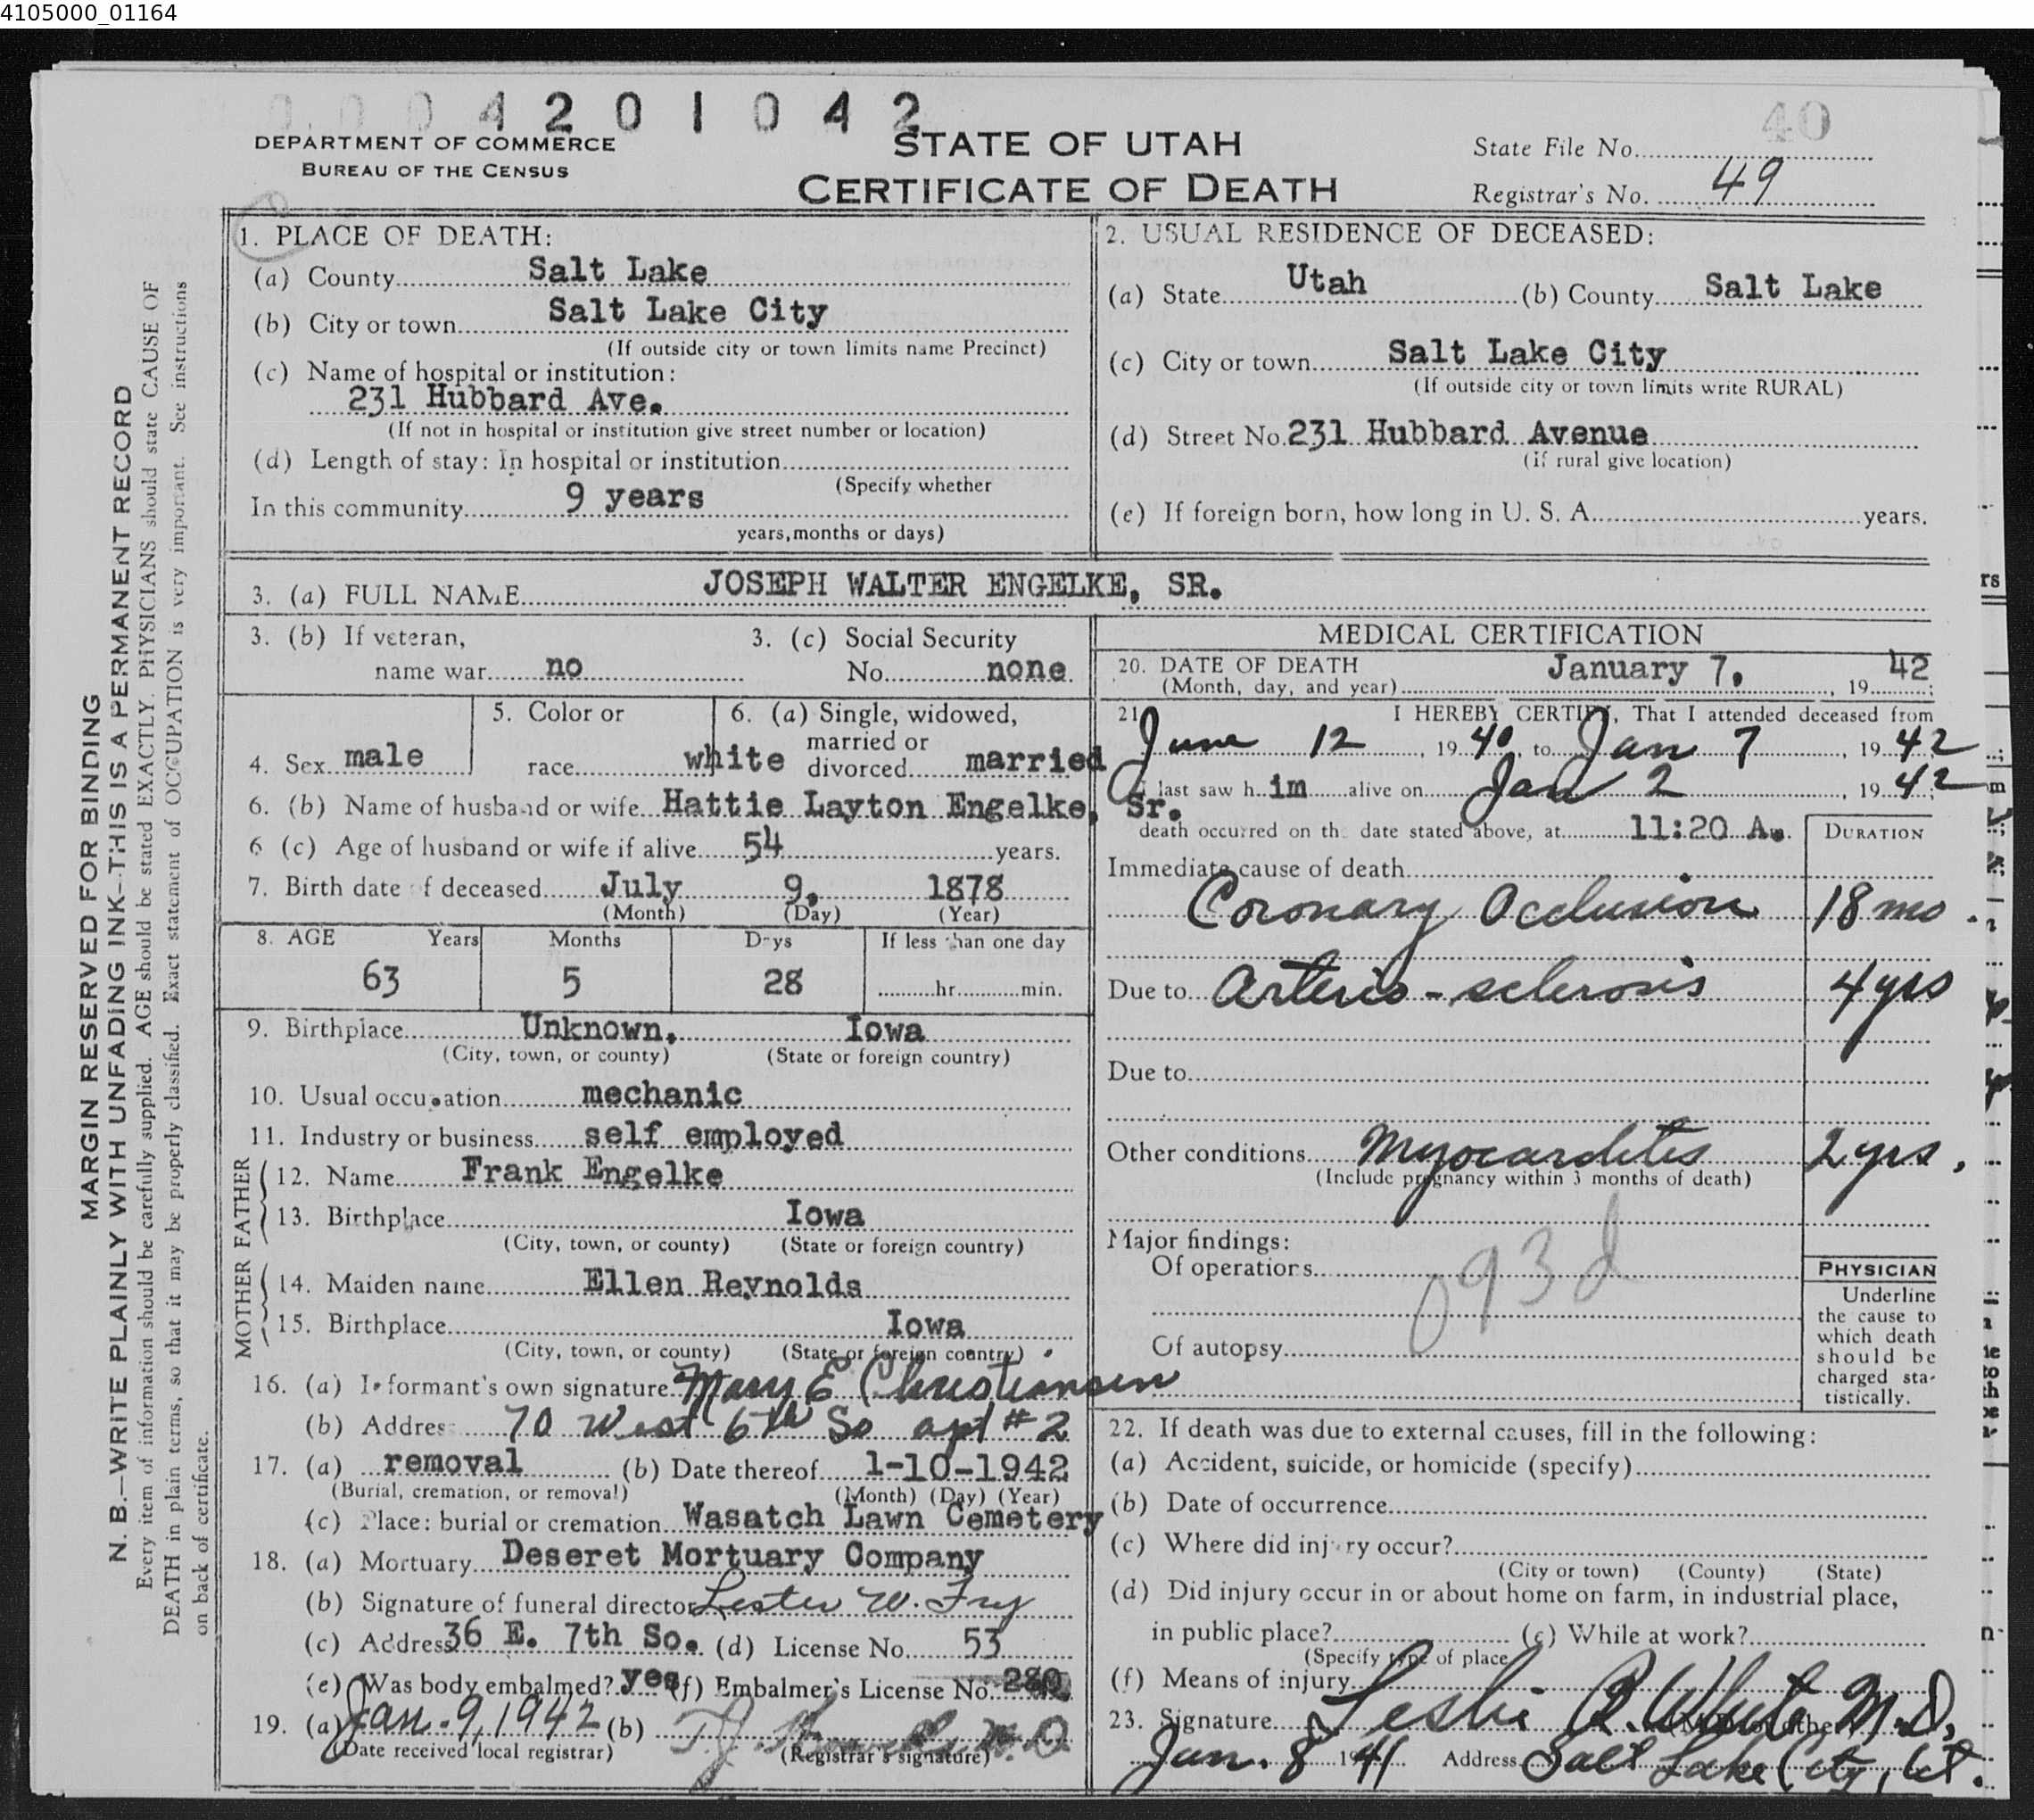 4105000_01164
0004201042
40
DEPARTMENT OF COMMERCE
BUREAU OF THE CENSUS
STATE OF UTAH
CERTIFICATE OF DEATH
State File No.
Registrar's No. 49
MARGIN RESERVED FOR BINDING
N. B.—WRITE PLAINLY WITH UNFADING INK—THIS IS A PERMANENT RECORD
Every item of information should be carefully supplied. AGE should be stated EXACTLY. PHYSICIANS should state CAUSE OF
DEATH in plain terms, so that it may be properly classified. Exact statement of OCCUPATION is very important. See instructions
on back of certificate.
1. PLACE OF DEATH:
(a) County Salt Lake
(b) City or town Salt Lake City
(If outside city or town limits name Precinct)
(c) Name of hospital or institution:
231 Hubbard Ave.
(If not in hospital or institution give street number or location)
(d) Length of stay: In hospital or institution
(Specify whether
In this community 9 years
years, months or days)
2. USUAL RESIDENCE OF DECEASED:
(a) State Utah (b) County Salt Lake
(c) City or town Salt Lake City
(If outside city or town limits write RURAL)
(d) Street No. 231 Hubbard Avenue
(If rural give location)
(e) If foreign born, how long in U. S. A. years.
3. (a) FULL NAME JOSEPH WALTER ENGELKE, SR.
3. (b) If veteran,
name war no
3. (c) Social Security
No. none
4. Sex male
5. Color or
race white
6. (a) Single, widowed,
married or
divorced married
6. (b) Name of husband or wife Hattie Layton Engelke, Sr.
6 (c) Age of husband or wife if alive 54 years.
7. Birth date of deceased July 9, 1878
(Month) (Day) (Year)
8. AGE Years Months Days If less than one day
63 5 28 hr. min.
9. Birthplace Unknown, Iowa
(City, town, or county) (State or foreign country)
10. Usual occupation mechanic
11. Industry or business self employed
FATHER
12. Name Frank Engelke
13. Birthplace Iowa
(City, town, or county) (State or foreign country)
MOTHER
14. Maiden name Ellen Reynolds
15. Birthplace Iowa
(City, town, or county) (State or foreign country)
16. (a) Informant's own signature Mary E Christiansen
(b) Address 70 West 6th So apt #2
17. (a) removal (b) Date thereof 1-10-1942
(Burial, cremation, or removal) (Month) (Day) (Year)
(c) Place: burial or cremation Wasatch Lawn Cemetery
18. (a) Mortuary Deseret Mortuary Company
(b) Signature of funeral director Lester W. Fry
(c) Address 36 E. 7th So. (d) License No. 53
(e) Was body embalmed? yes (f) Embalmer's License No. 280
19. (a) Jan. 9, 1942 (b) T.J. M.D.
(Date received local registrar) (Registrar's signature)
MEDICAL CERTIFICATION
20. DATE OF DEATH January 7, 42
(Month, day, and year) , 19
21. I HEREBY CERTIFY, That I attended deceased from
June 12, 1940, to Jan 7, 1942
I last saw h im alive on Jan 2, 1942;
death occurred on the date stated above, at 11:20 A.
DURATION
Immediate cause of death
Coronary Occlusion 18 mo.
Due to Arterio-sclerosis 4 yrs
Due to
Other conditions Myocarditis 2 yrs.
(Include pregnancy within 3 months of death)
Major findings:
Of operations
093d
Of autopsy
PHYSICIAN
Underline
the cause to
which death
should be
charged sta-
tistically.
22. If death was due to external causes, fill in the following:
(a) Accident, suicide, or homicide (specify)
(b) Date of occurrence
(c) Where did injury occur?
(City or town) (County) (State)
(d) Did injury occur in or about home on farm, in industrial place,
in public place? (e) While at work?
(Specify type of place
(f) Means of injury
23. Signature Leslie R. White M.D.
Jan. 8 1941 Address Salt Lake City, Ut.